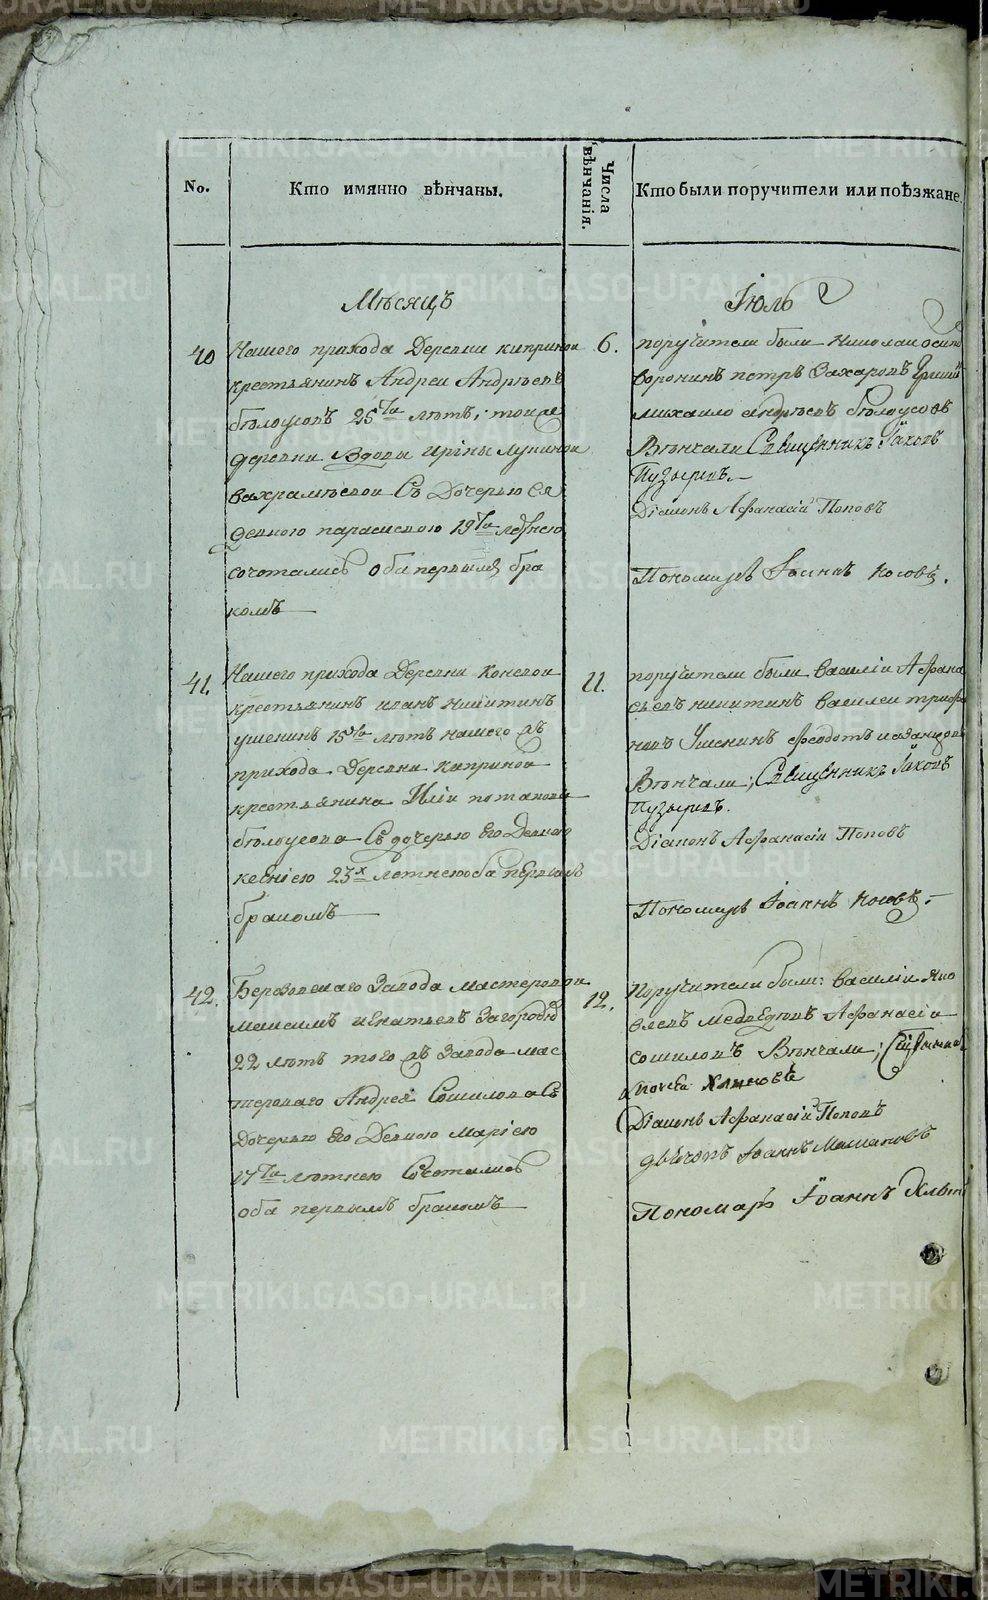 No.
Кто имянно вѣнчаны.
Числа вѣнчанія.
Кто были поручители или поѣзжане.
Мѣсяцъ
Іюль
40
Нашего прихода Деревни киприной
крестьянинъ Андреи Андрѣевъ
бѣлоусовъ 25ти лѣтъ, тоиже
деревни вдовы ирины лупиной
вахрамѣевои Съ Дочерью Ея
Девкою параскевою 19ти летнею
сочетались оба первымъ бра
комъ
6.
поручители были николаи осипо
воронинъ петръ Захаровъ
михаило андрѣевъ бѣлоусовъ
Вѣнчали Священникъ Іаковъ
Пузыревъ.
Діаконъ Афанасій Поповъ
Пономарь Іоаннъ Носовъ.
41.
Нашего прихода Деревни Коневои
крестьянинъ иванъ никитинъ
ушенинъ 15ти лѣтъ нашего жъ
прихода Деревни киприной
крестьянина Иліи потапова
бѣлоусова Съ дочерью Его Девкою
ксѣніею 23х летнею оба первымъ
бракомъ
11.
поручители были василіи Афана
сьевъ никитинъ василеи трифо
новъ Ушенинъ феодотъ
Вѣнчали; Священникъ Іаковъ
Пузыревъ.
Діаконъ Афанасіи Поповъ
Пономарь Іоаннъ Носовъ.
42.
Березовскаго Завода мастеровои
максимъ игнатьевъ
22 лѣтъ того жъ Завода мас
тероваго Андрея Сошилова Съ
Дочерью Его Девкою маріею
17ти лѣтнею Сочетались
оба первымъ бракомъ
12.
Поручители были: василіи яко
влевъ медведковъ Афанасіи
сошиловъ Вѣнчали; Священникъ
Діаконъ Афанасій Поповъ
дьячокъ Іоаннъ
Пономарь Іоаннъ
METRIKI.GASO-URAL.RU